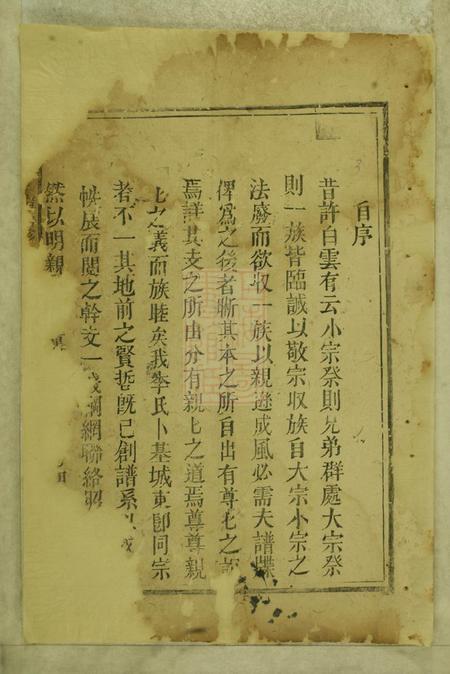 自序
昔許白雲有云小宗祭則兄弟群處大宗祭
則一族皆臨誠以敬宗収族自大宗小宗之
法廢而欲収一族以親遜成風必需夫譜牒
俾爲之後者晰其本之所自出有尊匕之
焉詳其支之所由分有親匕之道焉尊尊親
匕之義而族睦矣我李氏卜基城東卽同宗
者不一其地前之賢哲旣已創譜系
帙展而閱之幹支一 網聯絡
然以明親